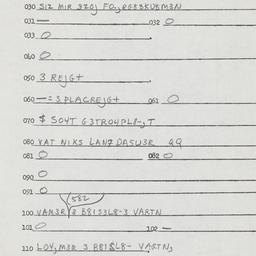 030 SIZ MIR 3ZOJ FO,,RGESKUEM3N
031 — 032 O
033 O
040 O
050 3 REJG+
060 — = 3 PLACREJG+ 061 O
070 $ SO4T G3TRO4PL8-,T
080 VAT NIKS LANZ DASU3R 99
081 O 082 O
090 O
091 O
582
100 VAM3R 3 B8153L8-3 VARTN
101 O 102 —
110 LOV,M3R 3 B81$L8- VARTN,